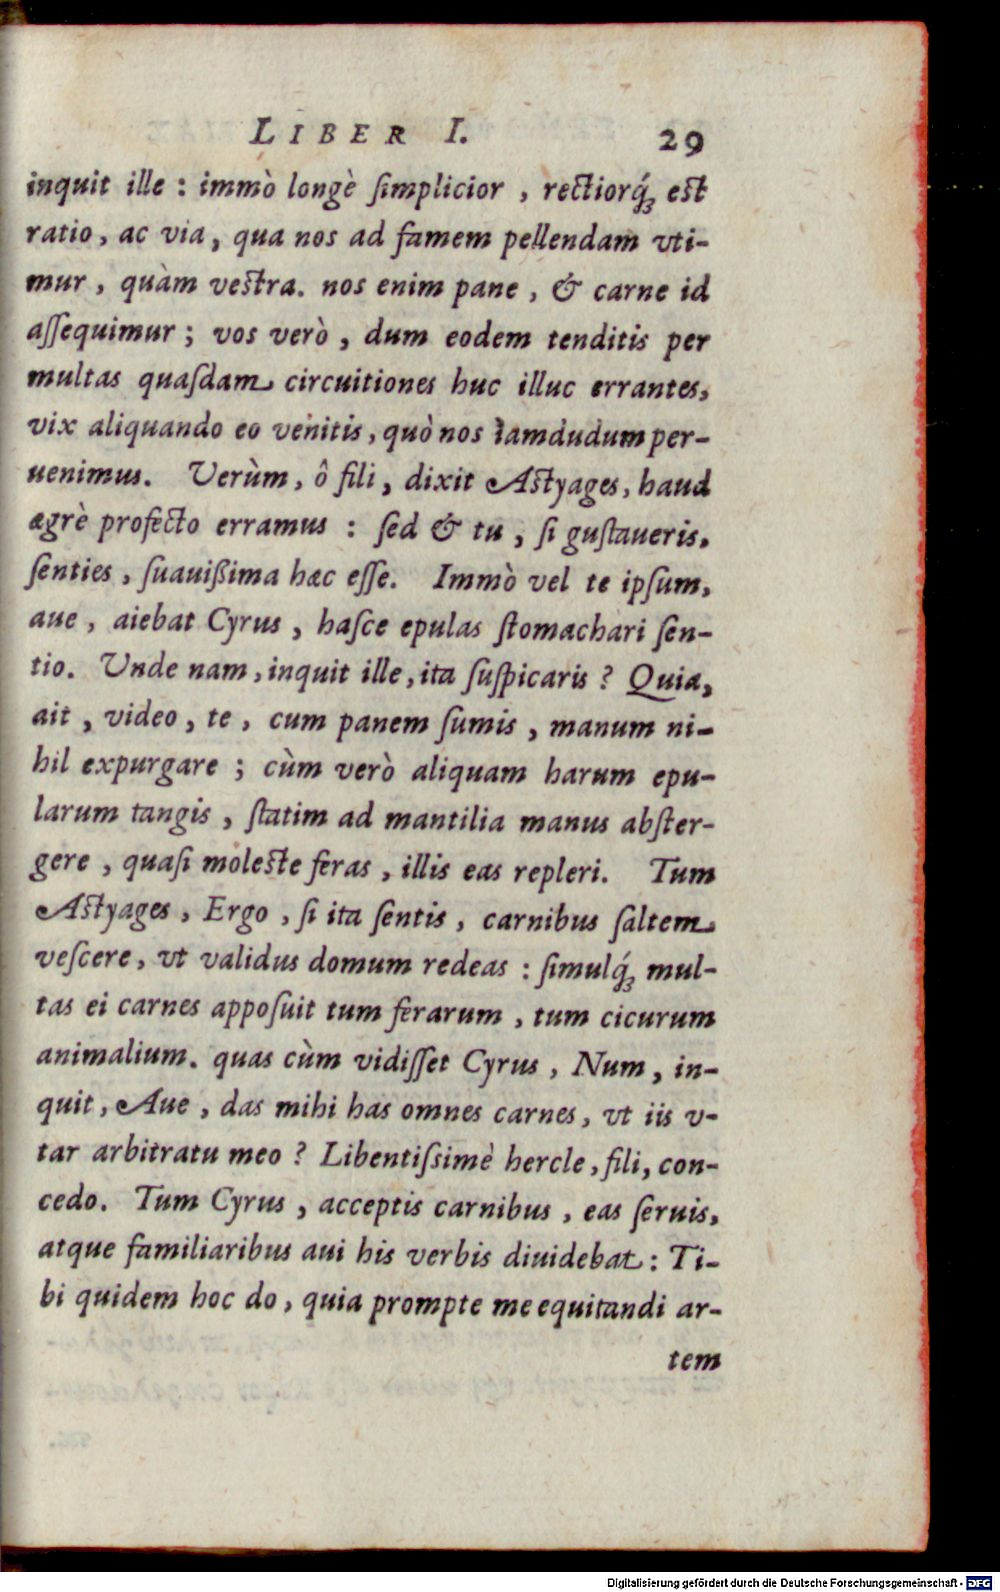 LIBER I. 29
inquit ille : immò longè ſimplicior , rectiorq́ꝫ est
ratio, ac via, qua nos ad famem pellendam vti-
mur , quàm vestra. nos enim pane , & carne id
aſſequimur ; vos verò , dum eodem tenditis per
multas quaſdam circuitiones huc illuc errantes,
vix aliquando eo venitis, quò nos iamdudum per-
uenimus. Verùm, ô fili, dixit Astyages, haud
ægrè profecto erramus : ſed & tu , ſi guſtaueris,
ſenties, ſuauißima hæc eſſe. Immò vel te ipſum,
aue , aiebat Cyrus , haſce epulas ſtomachari ſen-
tio. Unde nam, inquit ille, ita ſuſpicaris ? Quia,
ait , video, te , cum panem ſumis , manum ni-
hil expurgare ; cùm verò aliquam harum epu-
larum tangis , ſtatim ad mantilia manus abſter-
gere , quaſi moleste feras , illis eas repleri. Tum
Astyages , Ergo , ſi ita ſentis , carnibus ſaltem
veſcere, vt validus domum redeas : ſimulq́ꝫ mul-
tas ei carnes appoſuit tum ferarum , tum cicurum
animalium. quas cùm vidiſſet Cyrus , Num, in-
quit, Aue , das mihi has omnes carnes, vt iis v-
tar arbitratu meo ? Libentiſsimè hercle, fili, con-
cedo. Tum Cyrus , acceptis carnibus , eas ſeruis,
atque familiaribus aui his verbis diuidebat : Ti-
bi quidem hoc do, quia prompte me equitandi ar-
tem
Digitalisierung gefördert durch die Deutsche Forschungsgemeinschaft - DFG